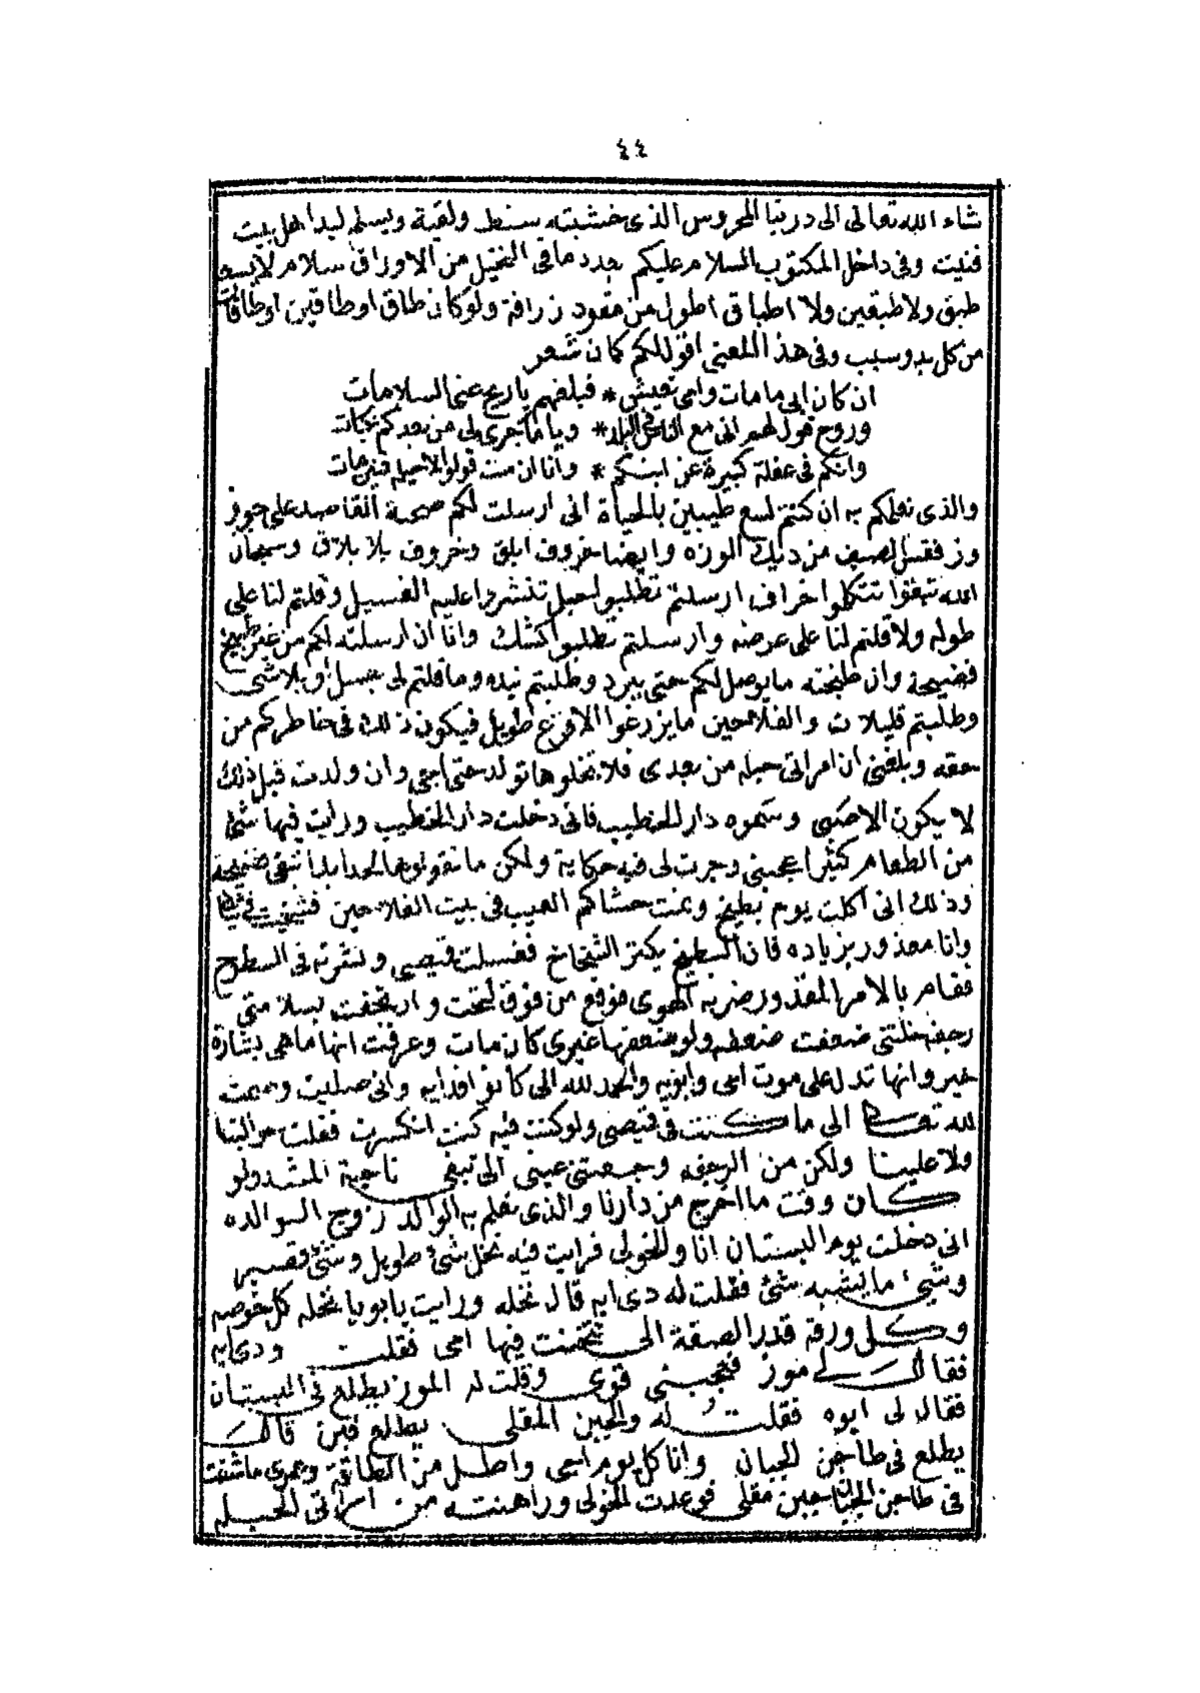 ٤٤
شاء الله تعالى الى دربنا المحروس الذى خشبته سنط ولقية ويسلم ليد اهل بيت
فنيت وفى داخل المكتوب السلام عليكم بعدد ما فى النخيل من الاوراق سلام لا يسعه
طبق ولا طبقين ولا اطباق اطول من مقود زرافة ولو كان طاق او طاقين او طاقات
من كل يد وسبب وفى هذا المعنى اقول لكم كان شعر
ان كان ابى ما مات وامى تعيش * فبلغهم ياريح عنى السلامات
وروح قول لهم انى مع الناس فى البلد * ويا ما تجرى لى من بعدكم نكات
وانكم فى غفلة كبيرة عن ابنكم * وانا ان مت قولوا لاحيله فتير مات
والذى نعلمكم به ان كنتم لسع طيبين بالحياة انى ارسلت لكم صحبة القاصد على جوز
وز فقس الصيف من ديك الوزه وايضا خروف ابلق وخروف بلا بلاق وسبحان
الله تبقوا تتكلموا خراف ارسلتم تطلبوا حبل تنشروا عليه الغسيل وقلتم لنا على
طوله ولا قلتم لنا على عرضه وارسلتم تطلبوا كشك وانا ان ارسلته لكم من غير طبيخ
فضيحة وان طبخته ما يوصل لكم حتى يبرد وطلبتم نيده وما قلتم لى بعسل او بلا شى
وطلبتم قليلات والفلاحين ما يزرغوا الا قرع طويل فيكون ذلك فى خاطركم من
حقه وبلغنى ان امراتى حبله من بعدى فلا تخلوها تولد حتى اجى وان ولدت قبل ذلك
لا يكون الا صبى وسموه دار الخطيب فانى دخلت دار الخطيب ورايت فيها شئ
من الطعام كثير اعجبنى وجرت لى فيه حكاية ولكن ما تقولوها لحد ابدا تبقى فضيحة
وذلك انى اكلت يوم بطيخ ونمت حشاكم العيب فى بيت الفلاحين فشخيت فى ثيابى
وانا معذور بزياده فان البطيخ يكتر الشخاخ فغسلت قميصى ونشرته فى السطوح
فقام بالامر المقدور ضربه الهوى فوقع من فوق لتحت وارتجفت بسلامتى
رجفه خلتنى ضعفت ضعفه ولو ضعفها غيرى كان مات وعرفت انها ما هى بشارة
خير وانها تدل على موت امى وابويه والحمد لله الى كانو افدايه وانى صليت وصمت
لله تعالى الى ما كنت فى قميصى ولو كنت فيه كنت انكسرت فقلت حوالينا
ولا علينا ولكن من الرجفه وجعتنى عينى الى تبقى ناحية المشدولو
كان وقت ما اخرج من دارنا والذى نعلم به الوالد زوج الوالده
انى دخلت يوم البستان انا والخولى فرايت فيه نخل شئ طويل وشئ قصير
وشئ ما يشبه شئ فقلت له دى ايه قال نخله ورايت يابويا نخله كل خوصه
وكل ورقة قدر الصفة الى تتحنت فيها امى فقلت ودى ايه
فقال لى موز فتعجبت قوى وقلت له الموز يطلع فى البستان
فقال لى ايوه فقلت له والجبن المقلى يطلع فين قال
يطلع فى طاجن الجبان وانا كل يوم اجى واطل من الطاقة وعمرى ما شفت
فى طاجن الجبان جبن مقلى فوعدت الخولى وراهنته من امراتى الحبله